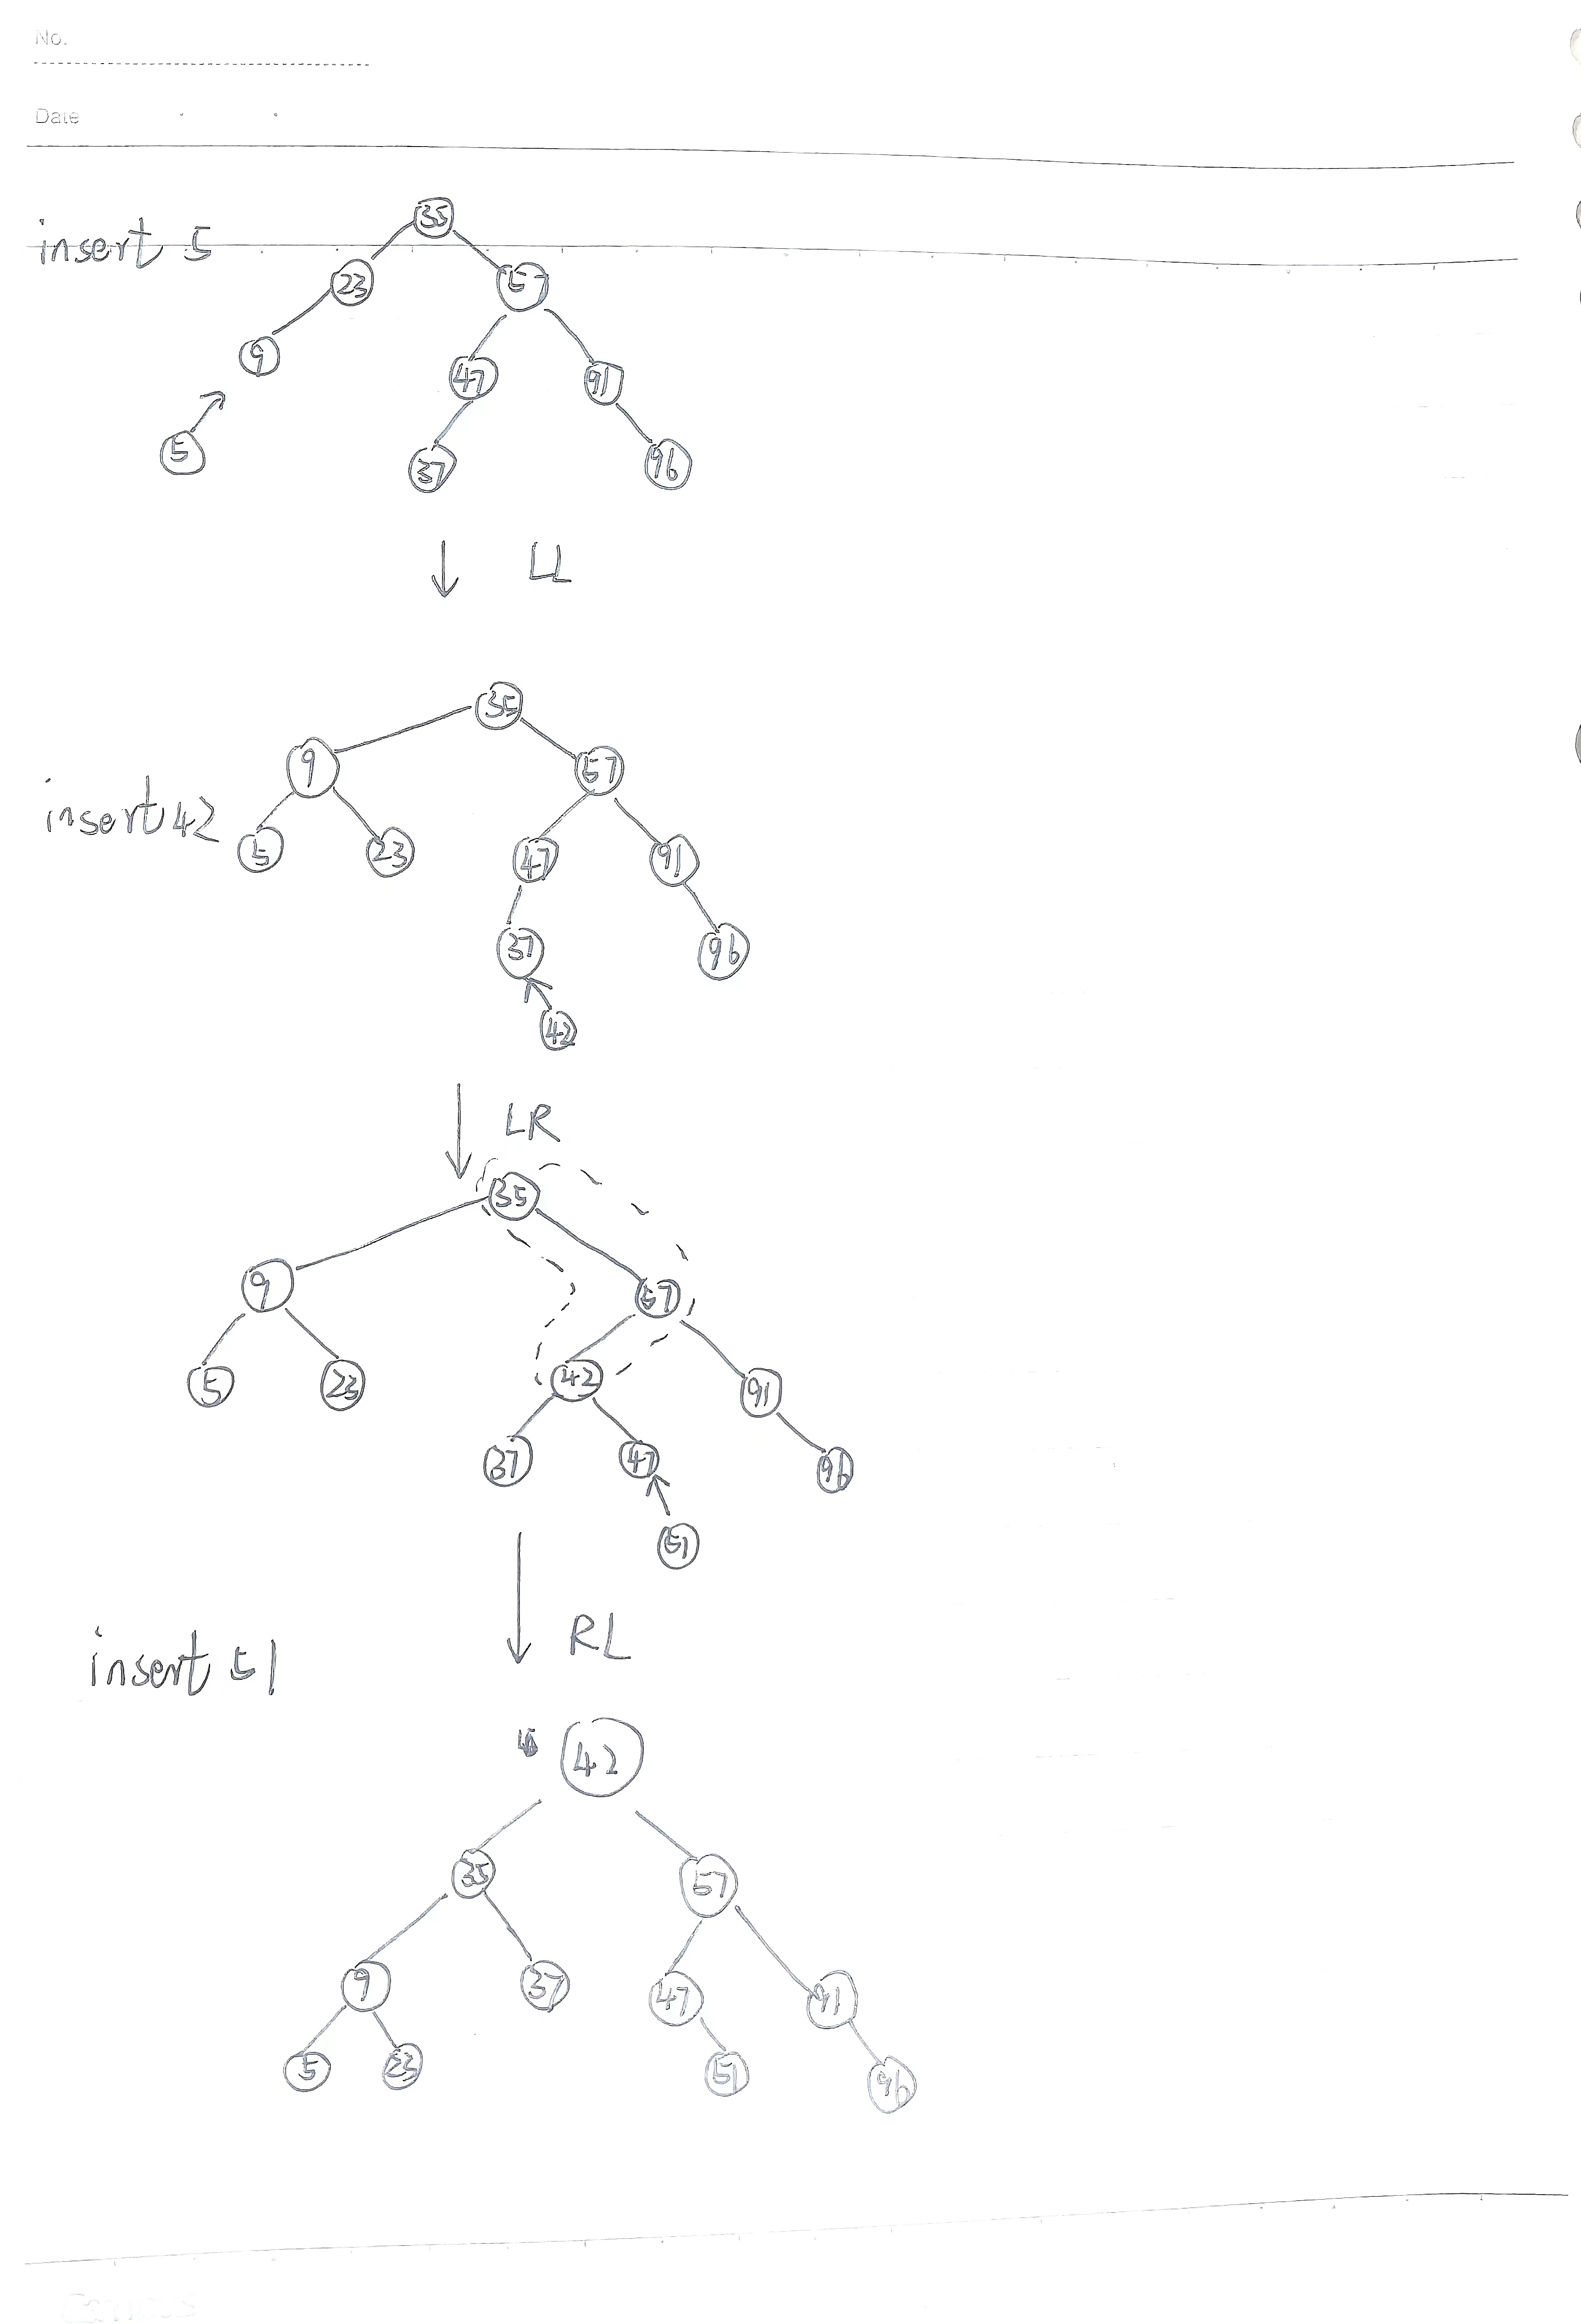 No.
Date
35
insert 5
23 57
9 47 91
5 37 96
LL
35
9 57
insert 42
5 23 47 91
37 96
42
LR
35
9 57
5 23 42 91
37 47 96
51
RL
insert 51
42
35 57
9 37 47 91
5 23 51 96